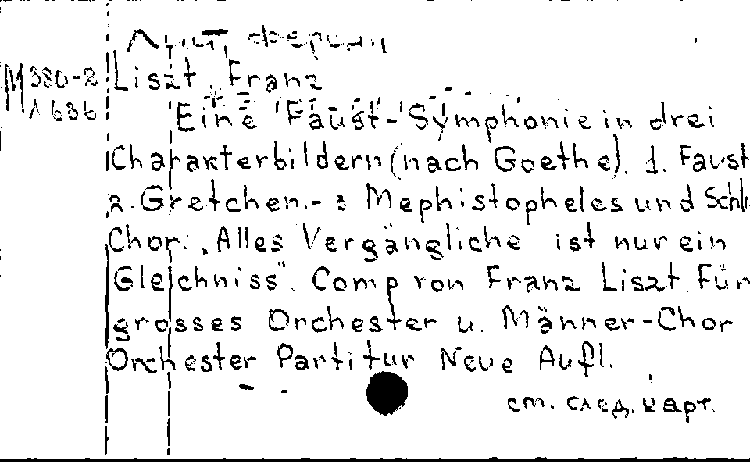 Лист, Ференц
М 380-2 Liszt, Franz
Л 636 Eine Faust-Symphonie in drei
Charakterbildern (nach Goethe). 1. Faust
2. Gretchen.- 3 Mephistopheles und Schlu
Chor: „Alles Vergängliche ist nur ein
Gleichniss". Comp von Franz Liszt. Für
grosses Orchester u. Männer-Chor
Orchester Partitur Neue Aufl.
см. след. карт.